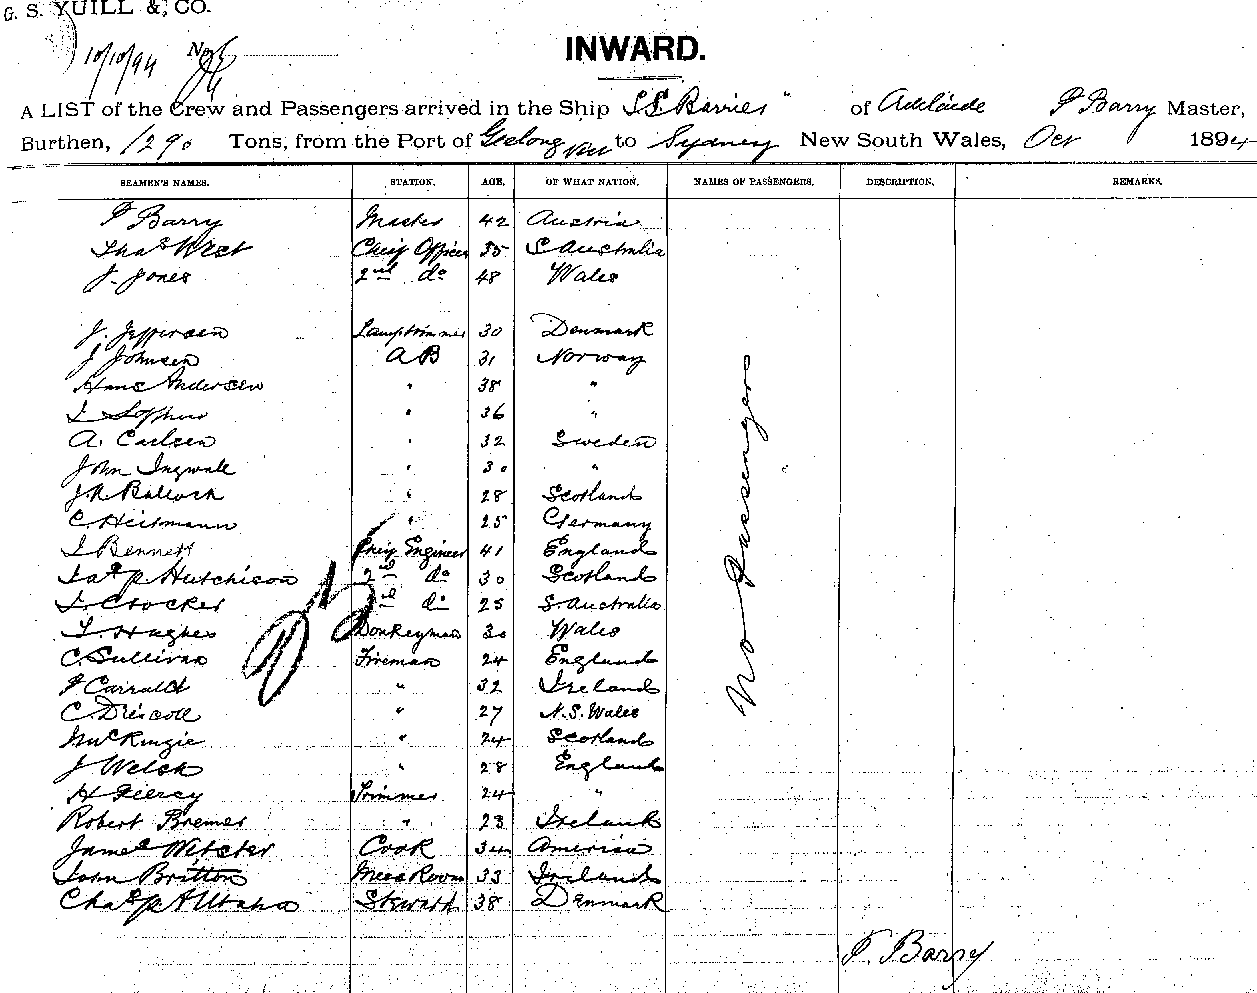 G. S. YUILL & CO.
10/10/94 No
INWARD.
A LIST of the Crew and Passengers arrived in the Ship "S.S. Barries" of Adelaide P Barry Master,
Burthen, 1290 Tons, from the Port of Geelong to Sydney New South Wales, Oct 1894
SEAMEN'S NAMES. STATION. AGE. OF WHAT NATION. NAMES OF PASSENGERS. DESCRIPTION. REMARKS.
P Barry Master 42 Austria
Thos West Chief Officer 35 S Australia
J. Jones 2nd do 48 Wales
J. Jeppersen Lamptrimmer 30 Denmark
J Johnsen AB 31 Norway
Hans Andersen " 38 "
" 36 "
A. Carlsen " 32 Sweden
John Ingwall " 30 "
J.R. Bullock " 28 Scotland
C. Heitmann " 25 Germany
J Bennett Chief Engineer 41 England
Hutchison 2nd do 30 Scotland
J. Crocker do 25 S. Australia
J. Hughes Donkeyman 30 Wales
C. Sullivan Fireman 24 England
J Carrald " 32 Ireland
C. Driscoll " 27 N.S. Wales
McKinzie " 24 Scotland
J Welch " 28 England
H Piercy Trimmer 24 "
Robert Bremer " 23 Ireland
James Webster Cook 34 America
John Britton Mess Room 33 Ireland
Steward 38 Denmark
No Passengers
P. Barry